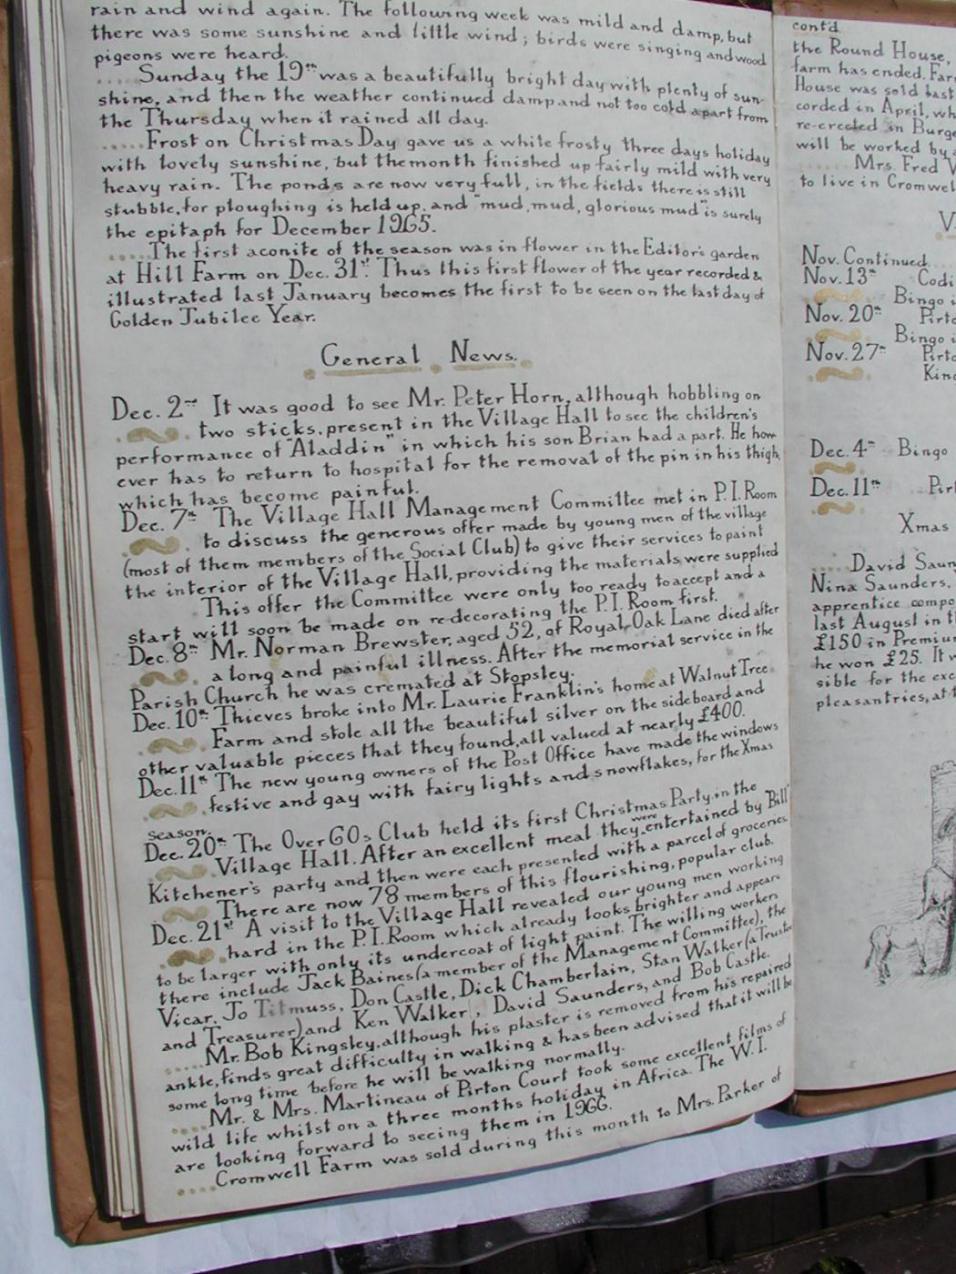 rain and wind again. The following week was mild and damp, but
there was some sunshine and little wind; birds were singing and wood
pigeons were heard.
.....Sunday the 19th was a beautifully bright day with plenty of sun-
shine, and then the weather continued damp and not too cold apart from
the Thursday when it rained all day.
.....Frost on Christmas Day gave us a white frosty three days holiday
with lovely sunshine, but the month finished up fairly mild with very
heavy rain. The ponds are now very full, in the fields there is still
stubble, for ploughing is held up, and "mud, mud, glorious mud" is surely
the epitaph for December 1965.
.....The first aconite of the season was in flower in the Editor's garden
at Hill Farm on Dec. 31st. Thus this first flower of the year recorded &
illustrated last January becomes the first to be seen on the last day of
Golden Jubilee Year.
General News.
Dec. 2nd It was good to see Mr. Peter Horn, although hobbling on
two sticks, present in the Village Hall to see the children's
performance of "Aladdin" in which his son Brian had a part. He how
ever has to return to hospital for the removal of the pin in his thigh,
which has become painful.
Dec. 7th The Village Hall Management Committee met in P.I. Room
to discuss the generous offer made by young men of the village
(most of them members of the Social Club) to give their services to paint
the interior of the Village Hall, providing the materials were supplied
This offer the Committee were only too ready to accept and a
start will soon be made on re-decorating the P.I. Room first.
Dec. 8th Mr. Norman Brewster, aged 52, of Royal Oak Lane died after
a long and painful illness. After the memorial service in the
Parish Church he was cremated at Stopsley.
Dec. 10th Thieves broke into Mr. Laurie Franklin's home at Walnut Tree
Farm and stole all the beautiful silver on the sideboard and
other valuable pieces that they found, all valued at nearly £400.
Dec. 11th The new young owners of the Post Office have made the windows
festive and gay with fairy lights and snowflakes, for the Xmas
season.
Dec. 20th The Over 60s Club held its first Christmas Party in the
Village Hall. After an excellent meal they were entertained by Bill
Kitchener's party and then were each presented with a parcel of groceries
There are now 78 members of this flourishing, popular club.
Dec. 21st A visit to the Village Hall revealed our young men working
hard in the P.I. Room which already looks brighter and appears
to be larger with only its undercoat of light paint. The willing workers
there include Jack Baines (a member of the Management Committee), the
Vicar, Jo Titmuss, Don Castle, Dick Chamberlain, Stan Walker (a Trustee
and Treasurer) and Ken Walker, David Saunders, and Bob Castle.
.....Mr. Bob Kingsley, although his plaster is removed from his repaired
ankle, finds great difficulty in walking & has been advised that it will be
some long time before he will be walking normally.
.....Mr. & Mrs. Martineau of Pirton Court took some excellent films of
wild life whilst on a three months holiday in Africa. The W.I.
are looking forward to seeing them in 1966.
.....Cromwell Farm was sold during this month to Mrs. Parker of
cont'd
the Round House,
farm has ended. Far
House was sold last
corded in April, wh
re-erected in Burge
will be worked by a
......Mrs. Fred W
to live in Cromwel
V
Nov. Continued
Nov. 13th Codi
Bingo i
Nov. 20th Pirto
Bingo i
Nov. 27th Pirto
King
Dec. 4th Bingo
Dec. 11th Pirt
Xmas
.....David Saun
Nina Saunders,
apprentice compo
last August in t
£150 in Premiu
he won £25. It w
sible for the exc
pleasantries, at t